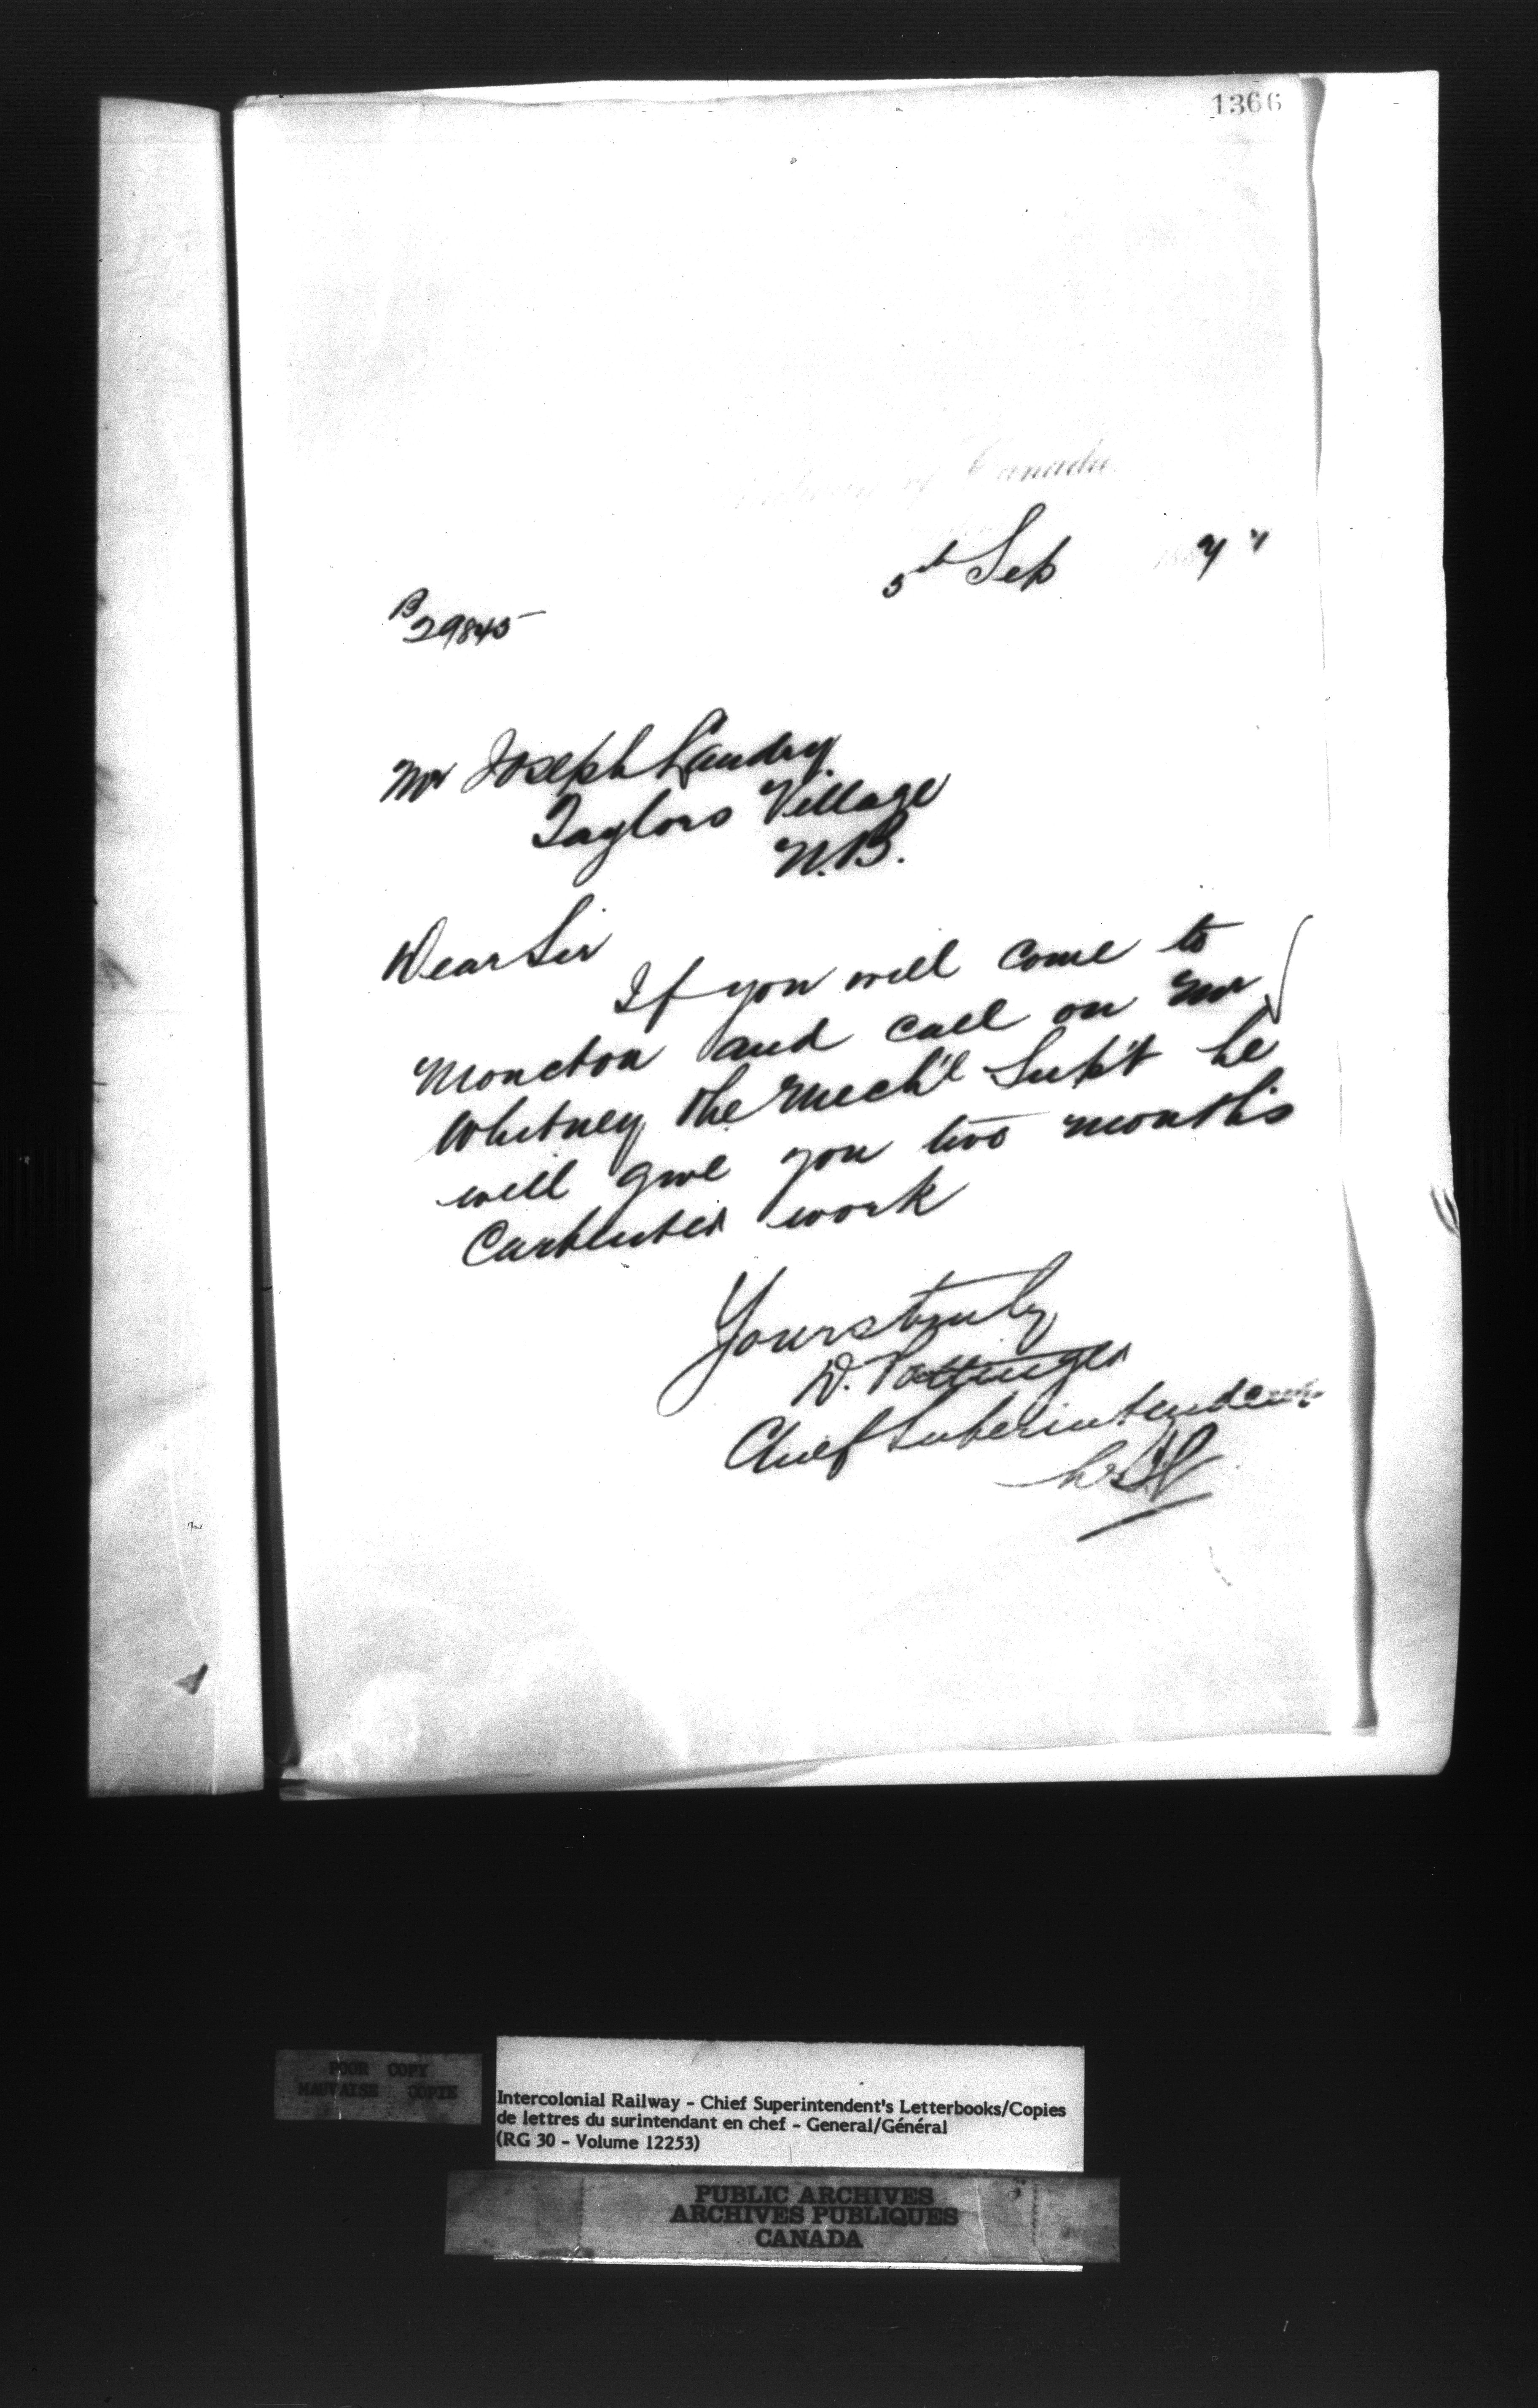 1366
of Canada
5th Sep 1887
B
29845
Mr Joseph Landry
Taylors Village
N.B.
Dear Sir
If you will come to
Moncton and call on Mr
Whitney the Mech'l Sup't he
will give you two months
Carpenter work
Yours truly
D. Pottinger
Chief Superintendent
POOR COPY
MAUVAISE COPIE
Intercolonial Railway - Chief Superintendent's Letterbooks/Copies
de lettres du surintendant en chef - General/Général
(RG 30 - Volume 12253)
PUBLIC ARCHIVES
ARCHIVES PUBLIQUES
CANADA